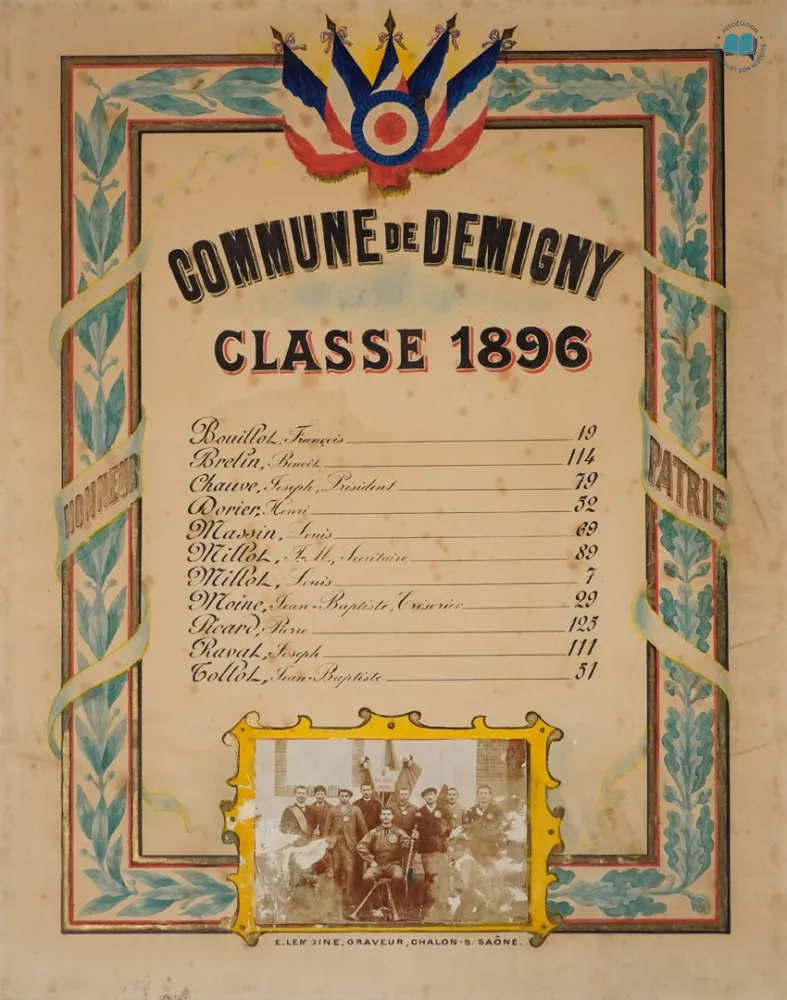 ASSOCIATION
ET SON HISTOIRE
COMMUNE DE DEMIGNY
CLASSE 1896
Bouillot, François 19
Brelin, Benoit 114
Chauve, Joseph, Président 79
Dorier, Henri 52
Massin, Louis 69
Millot, J.-M., Secrétaire 89
Millot, Louis 7
Moine, Jean-Baptiste, Trésorier 29
Picard, Pierre 125
Ravat, Joseph 111
Tollot, Jean-Baptiste 51
HONNEUR
PATRIE
E. LEMOINE, GRAVEUR, CHALON-S-SAÔNE.